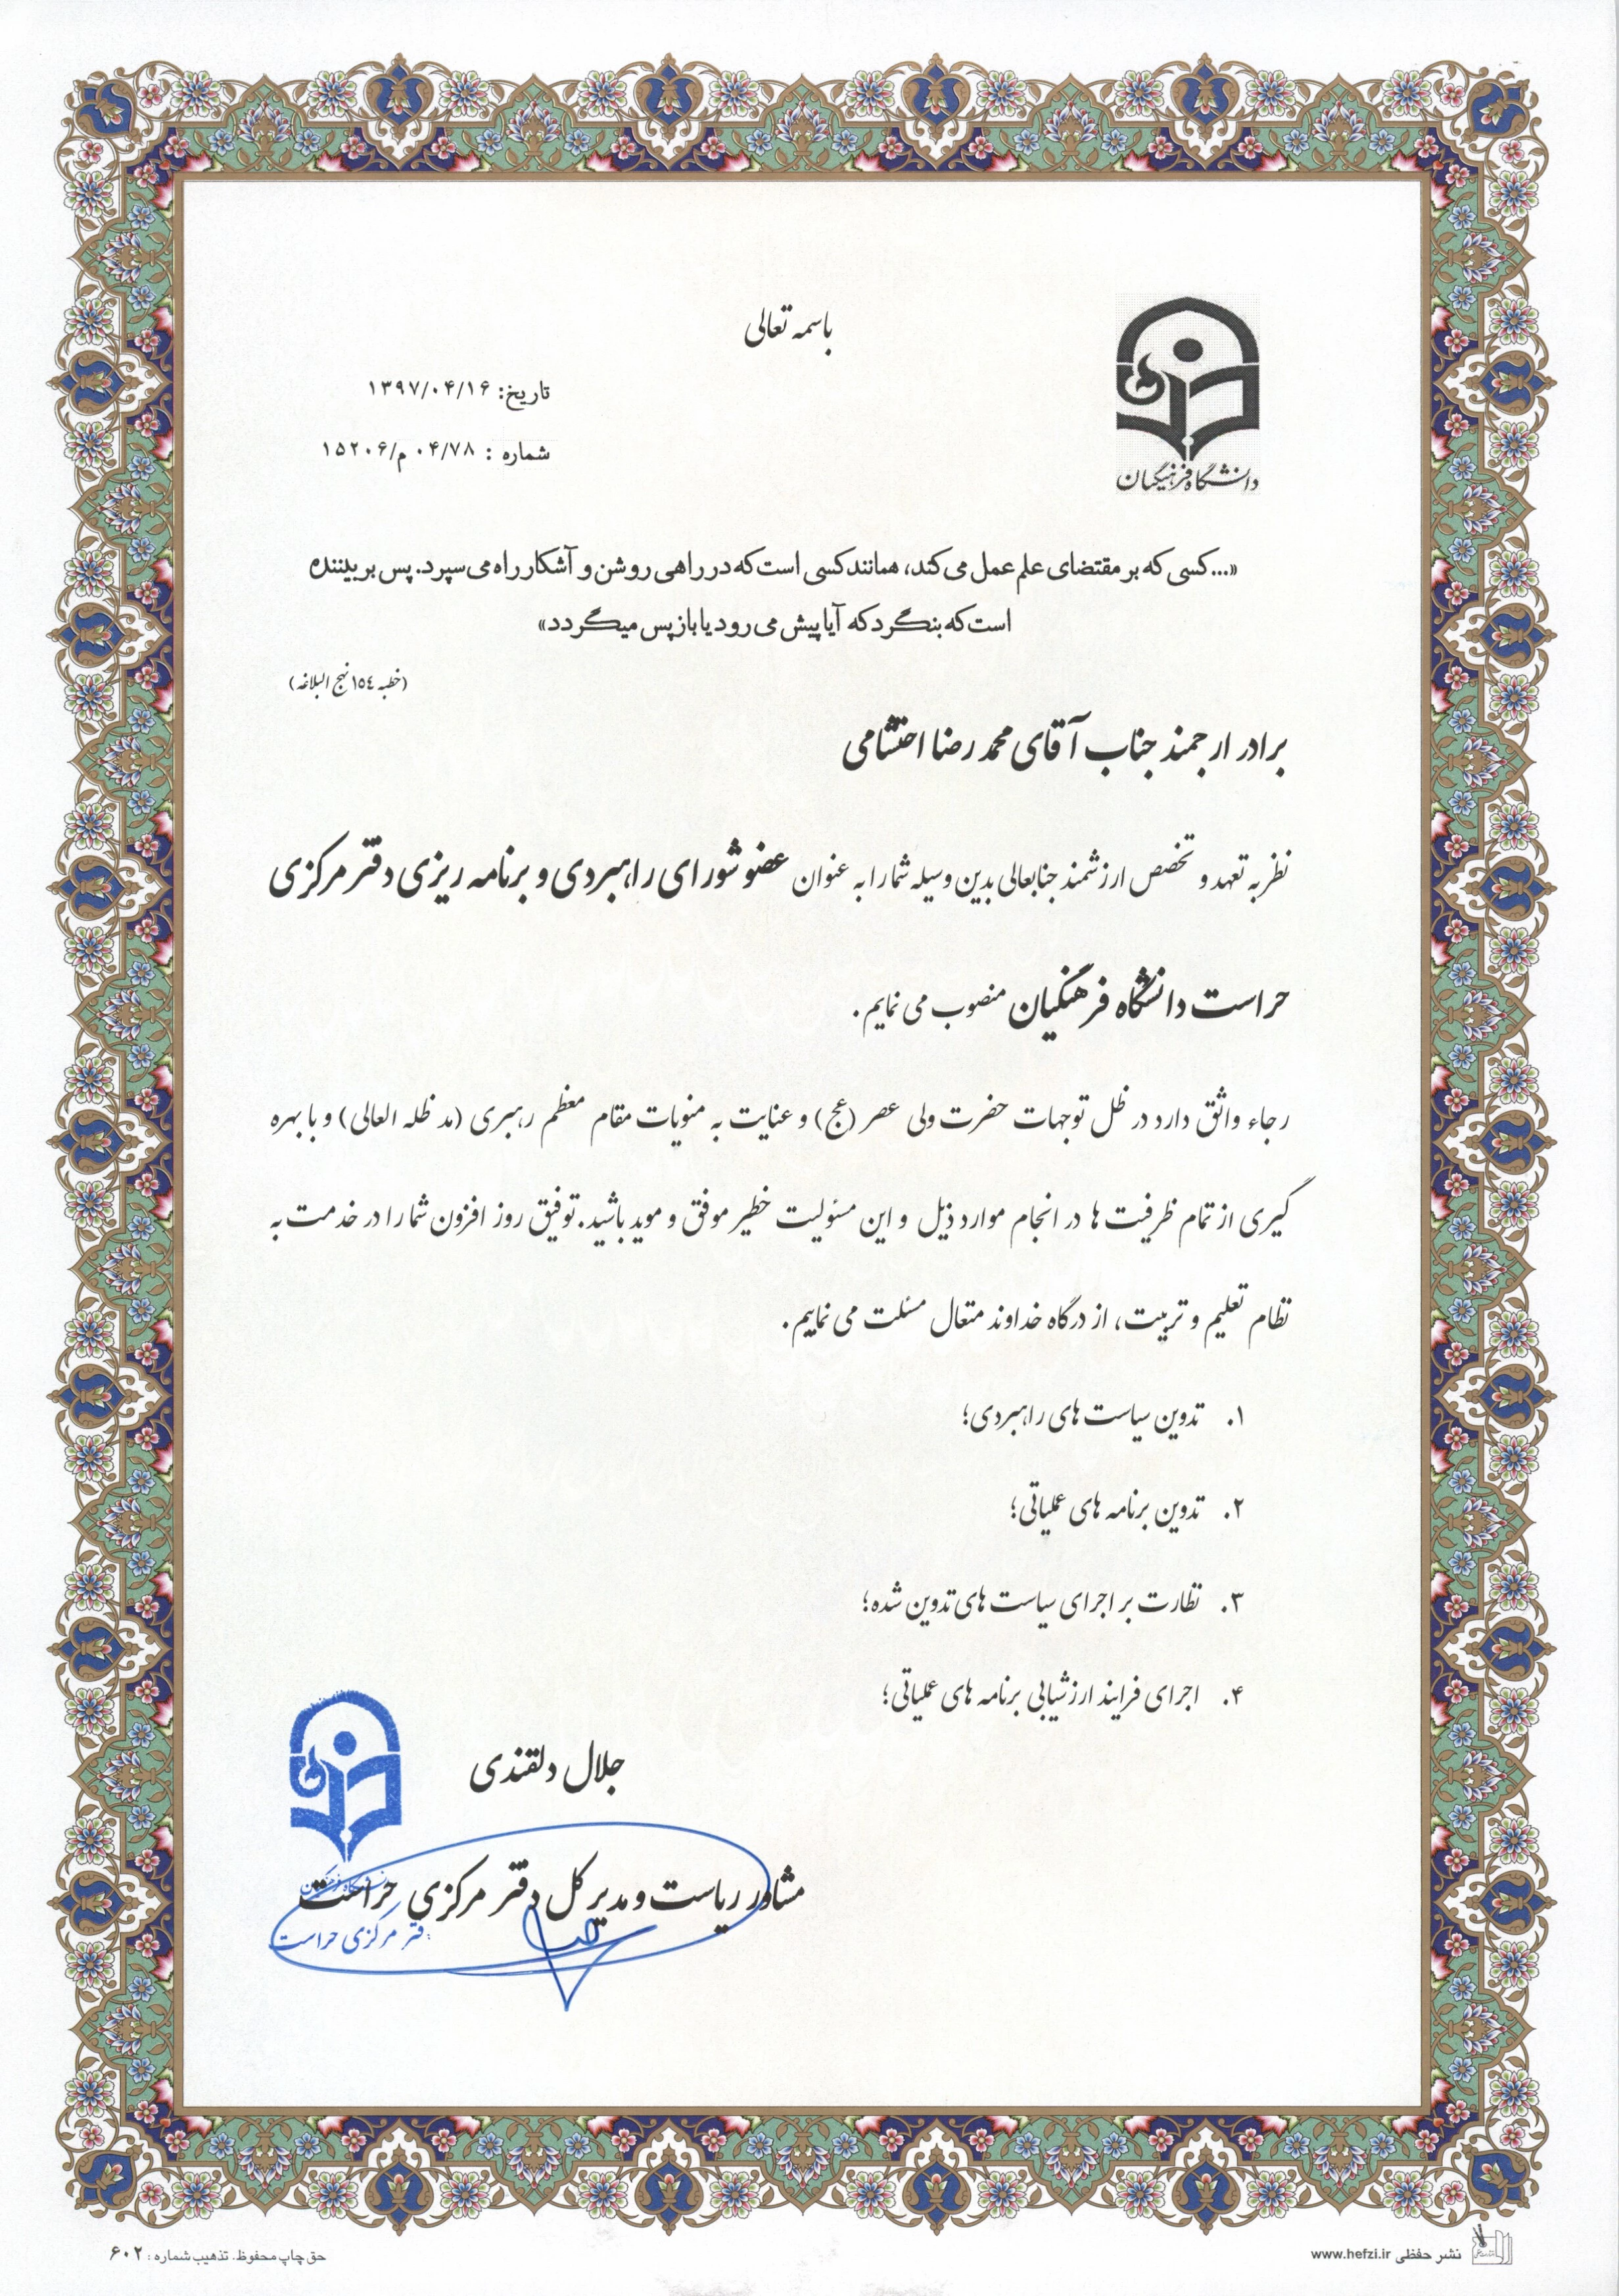 باسمه تعالی
تاریخ: ۱۳۹۷/۰۴/۱۶
شماره : ۰۴/۷۸م/۱۵۲۰۶
دانشگاه فرهنگیان
«...کسی که بر مقتضای علم عمل می کند، همانند کسی است که در راهی روشن و آشکار راه می سپرد. پس بر بیننده
است که بنگرد که آیا پیش می رود یا باز پس میگردد»
(خطبه ١٥٤ نهج البلاغه)
برادر ارجمند جناب آقای محمد رضا احتشامی
نظر به تعهد و تخصص ارزشمند جنابعالی بدین وسیله شما را به عنوان عضو شورای راهبردی و برنامه ریزی دفتر مرکزی
حراست دانشگاه فرهنگیان منصوب می نمایم.
رجاء واثق دارد در ظل توجهات حضرت ولی عصر (عج) و عنایت به منویات مقام معظم رهبری (مد ظله العالی) و با بهره
گیری از تمام ظرفیت ها در انجام موارد ذیل و این مسئولیت خطیر موفق و موید باشید. توفیق روز افزون شما را در خدمت به
نظام تعلیم و تربیت، از درگاه خداوند متعال مسئلت می نماییم.
۱. تدوین سیاست های راهبردی؛
۲. تدوین برنامه های عملیاتی؛
۳. نظارت بر اجرای سیاست های تدوین شده؛
۴. اجرای فرایند ارزشیابی برنامه های عملیاتی؛
جلال دلقندی
مشاور ریاست و مدیر کل دفتر مرکزی حراست
دفتر مرکزی حراست
نشر حفظی www.hefzi.ir
حق چاپ محفوظ. تذهیب شماره : ۶۰۲